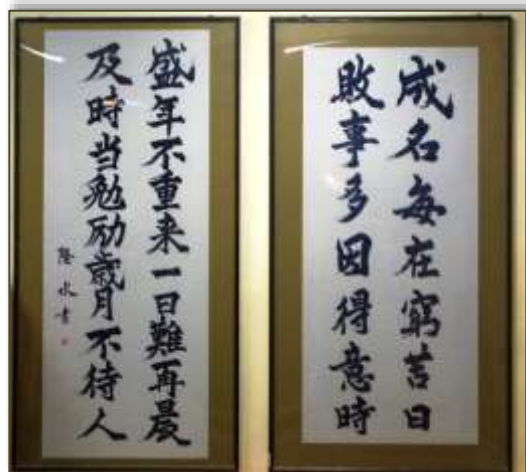 成名每在窮苦日
敗事多因得意時
盛年不重来一日難再晨
及時当勉励歳月不待人
隆水書